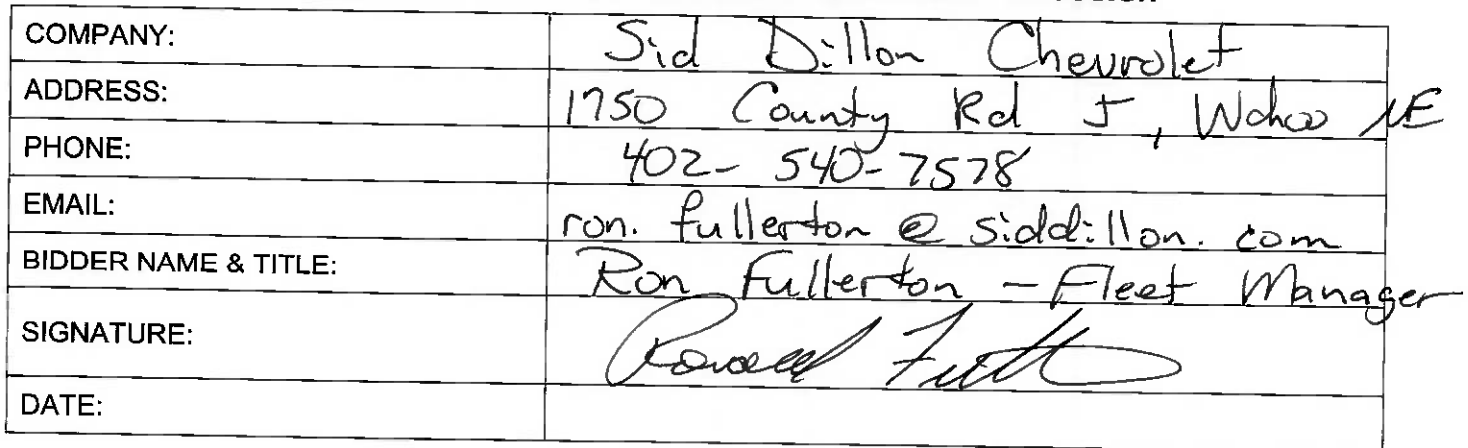 COMPANY: Sid Dillon Chevrolet
ADDRESS: 1750 County Rd J, Wahoo NE
PHONE: 402-540-7578
EMAIL: ron.fullerton@siddillon.com
BIDDER NAME & TITLE: Ron Fullerton - Fleet Manager
SIGNATURE: Ronald Fullerton
DATE: